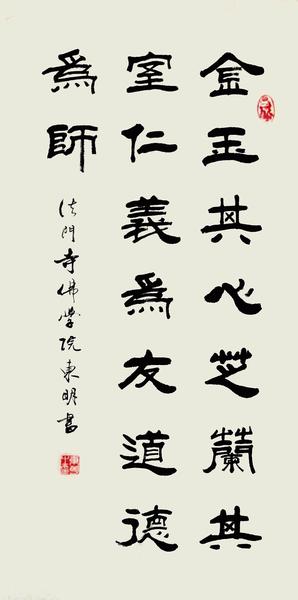 金玉其心芝蘭其
室仁義爲友道德
爲師
法門寺佛學院東明書